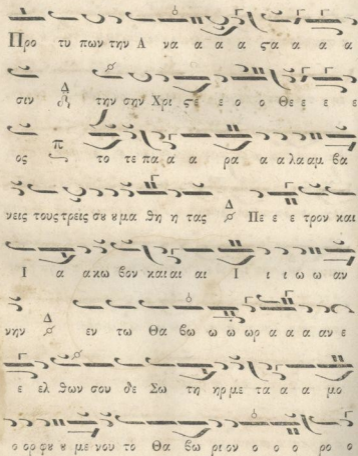 Προ τυ πων την Α να α α α ϛα α α α
σιν Δ την σην Χρι ϛε ε ο ο Θε ε ε ε
ος π το τε πα α α ρα α α λα αμ βα
νεις τους τρεις σου ου μα θη η τας Δ Πε ε ε τρον και
Ι α α κω βον και αι αι Ι ι ι ω ω αν
νην Δ εν τω Θα βω ω ω ωρ α α α αν ε
ε ελ θων σου δε Σω τη ηρ με τα α α μο
ο ορ φου ου με νου το Θα βω ρι ον ο ο ο ρο ο